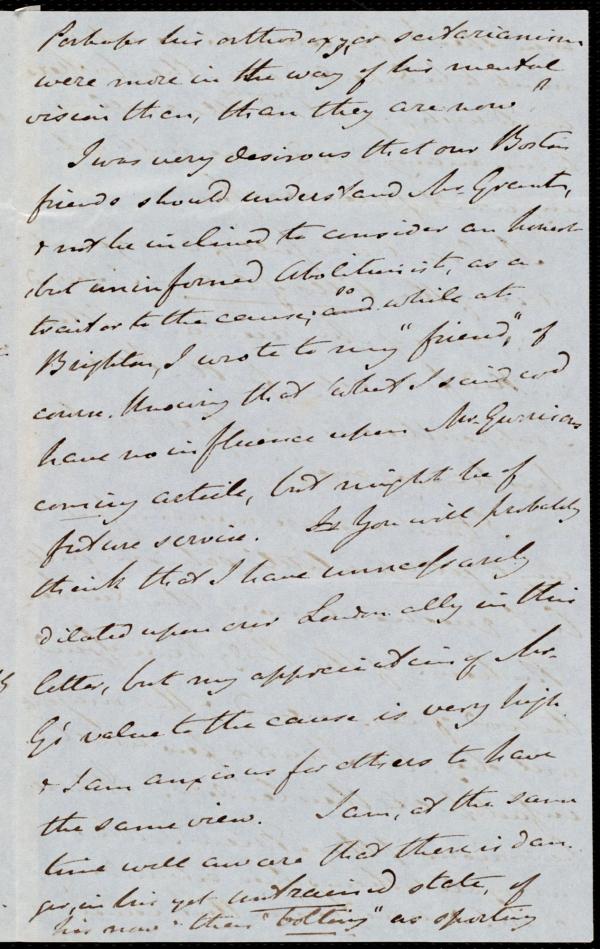 Perhaps his orthodoxy, or sectarianism
were more in the way of his mental
vision then, than they are now?
I was very desirous that our Boston
friends should understand Mr. Grant,
& not be inclined to consider an honest
but uninformed Abolitionist, as a
traitor to the cause; and so while at
Brighton, I wrote to my "friend," of
course. Knowing that what I said cod
have no influence upon Mr. Garrison's
coming article, but might be of
future service. You will probably
think that I have unnecessarily
dilated upon our London ally in this
letter, but my appreciation of Mr.
G's value to the cause is very high
& I am anxious for others to have
the same view. I am, at the same
time well aware that there is dan-
ger, in his yet untrained state, of
his now & then "bolting" as sporting